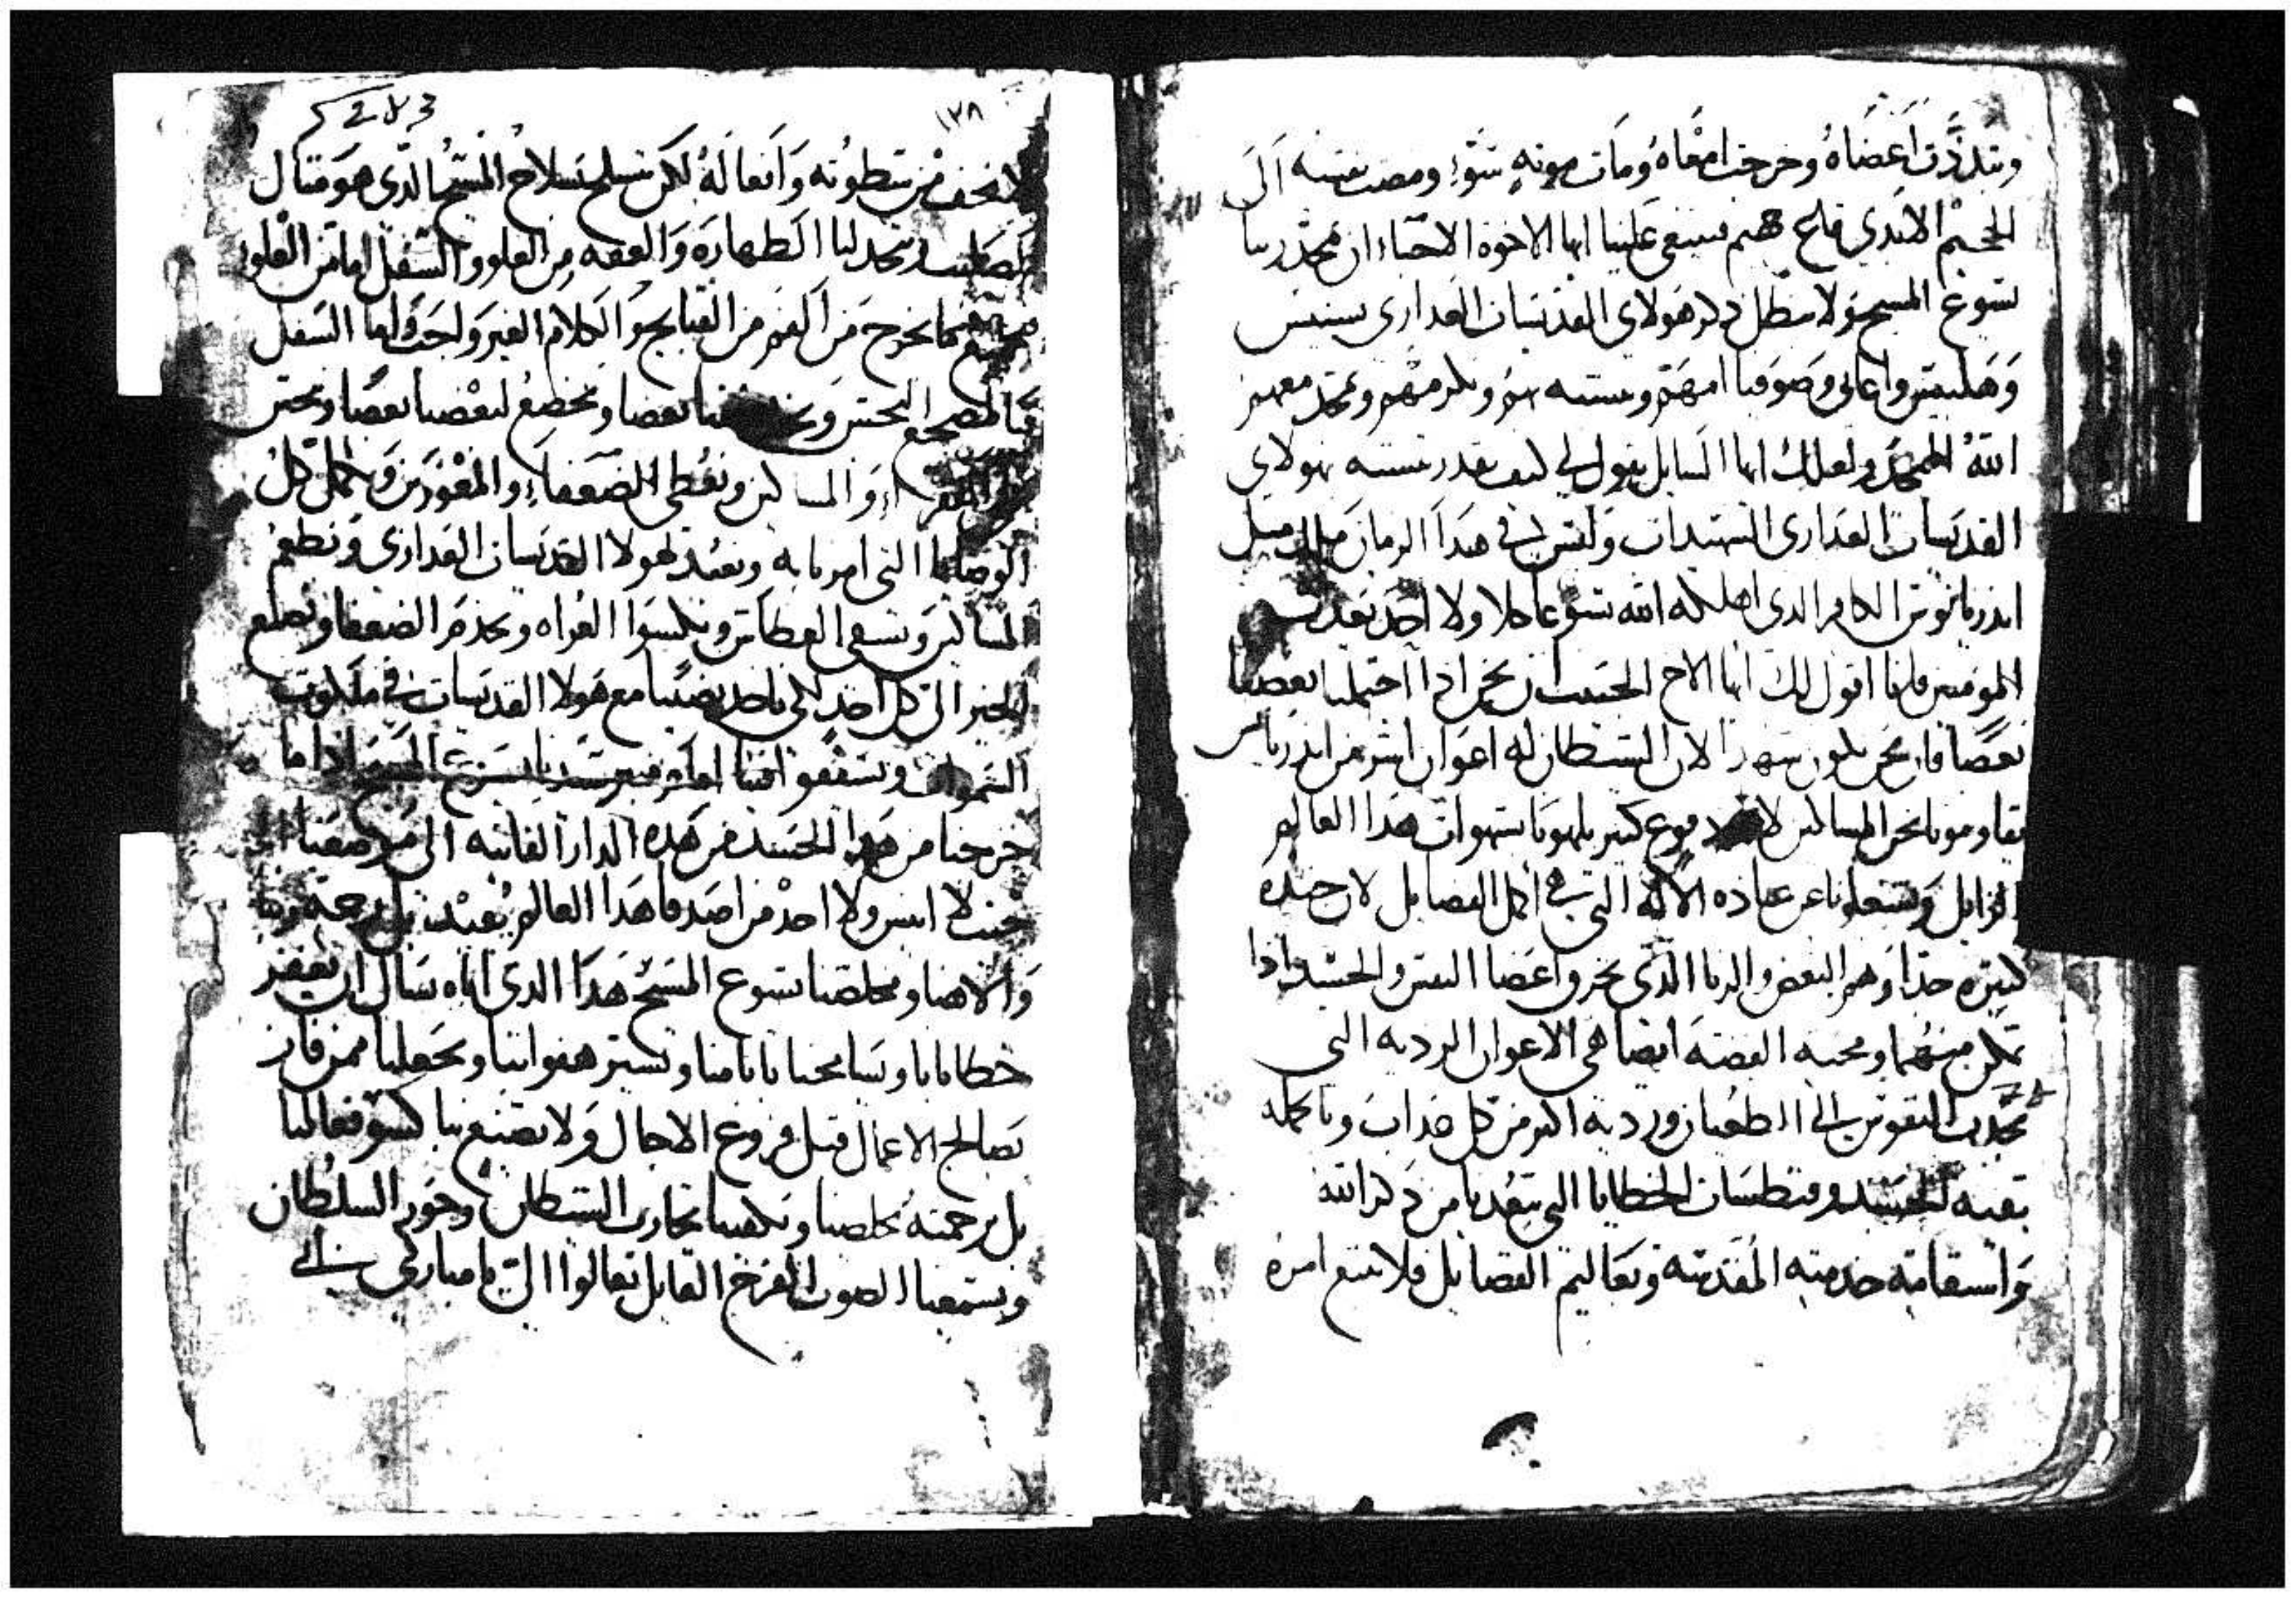 وتبدزت اعضاه وخرجت امعاه ومات موته سو ومضت نفسه الى
الجحيم الابدى فلع هنم فينبغى علينا ايها الاخوة الاحباء ان نمجد ربنا
يسوع المسيح ولا نبطل ذكر هولاى القديسات العذارى بيستس
وهلبيس واغابى وصوفيا امهم ونتشبه بهم ونكرمهم ونمجد معهم
الله الممجد ولعلك ايها السايل يقول لى كيف نقدر نتشبه بهولاى
القديسات العذارى الشهيدات وليس فى هذا الزمان ملك مثل
اندريانوس الكافر الذى اهلكه الله سريعا كلا ولا احد يعذب
المومنين فانا اقول لك ايها الاخ الحبيب ان نحن اذا احتملنا بعضنا
بعضا فان نحن نكون شهدا لان الشيطان له اعوان اشر من اندريانس
يقاومونا نحن المساكين بنوع كبير يلهونا بشهوات هذا العالم
الزايل ويشغلونا عن عبادة الاله التى هى اكمل الفضايل لان جنده
كثيره جدا وهم البغض والزنا الذى يحرق اعضا النفس والجسد اذا
تمكن منهما ومحبه الفضة ايضا هى الاعوان الرديه التى
تجذب النفوس الى الطغيان ورديه اكثر من كل عذاب وبالجمله
بقيه الجسد وفنطسات الخطايا التى تبعدنا من ذكر الله
واستقامة خدمته المقدسة وتعاليم الفضايل فلا نتبع امره
١٣٨
لا نخف من سطوته وافعاله لكن نتسلح بسلاح المسيح الذى هو مثال
الصليب ونجعل لنا الطهارة والعفه من العلو والسفل اما من العلو
مما يخرج من الفم من القبايح والكلام الغير واجب واما السفل
فالمضجع النجس بعضنا بعضا ونخضع لبعضنا بعضا ونحسن
الى الفقراء والمساكين ونعطى الضعفاء والمعوزين ونكمل كل
الوصايا التى امرنا به ونعيد لهولا القديسات العذارى ونطعم
المساكين ونسقى العطاش ونكسوا العراه ونخدم الضعفا ونصنع
الخير الى كل احد لكى ناخذ نصيبا مع هولا القديسات فى ملكوت
السموات ويشفعوا فينا امام سيدنا يسوع المسيح اذا ما
خرجنا من هذا الجسد من هذه الدار الفانيه الى
حيث لا انيس ولا احد من اصدقا هذا العالم يعيننا بل رحمة ربنا
والاهنا ومخلصنا يسوع المسيح هذا الذى اياه نسال ان يغفر
خطايانا ويسامحنا باثامنا ويستر هفواتنا ويجعلنا ممن فاز
بصالح الاعمال قبل فروغ الاجال ولا يصنع بنا كسو فعالنا
بل برحمته يخلصنا ويكفينا تجارب الشيطان وجور السلطان
ويسمعنا الصوت الفرح القايل تعالوا الىّ يا مباركى ابى